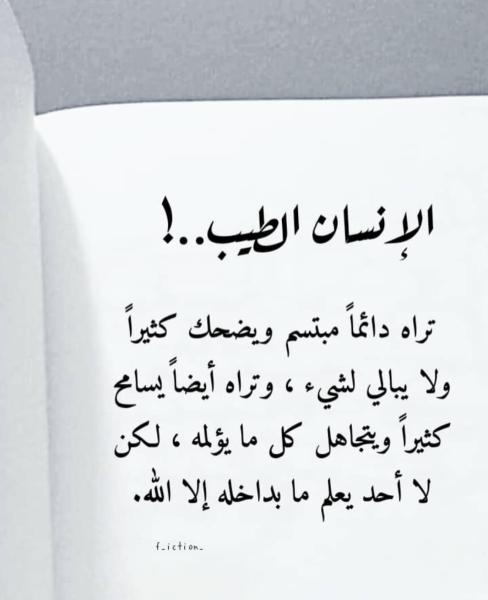 الإنسان الطيب..!
تراه دائماً مبتسم ويضحك كثيراً
ولا يبالي لشيء ، وتراه أيضاً يسامح
كثيراً ويتجاهل كل ما يؤلمه ، لكن
لا أحد يعلم ما بداخله إلا الله.
f_iction_